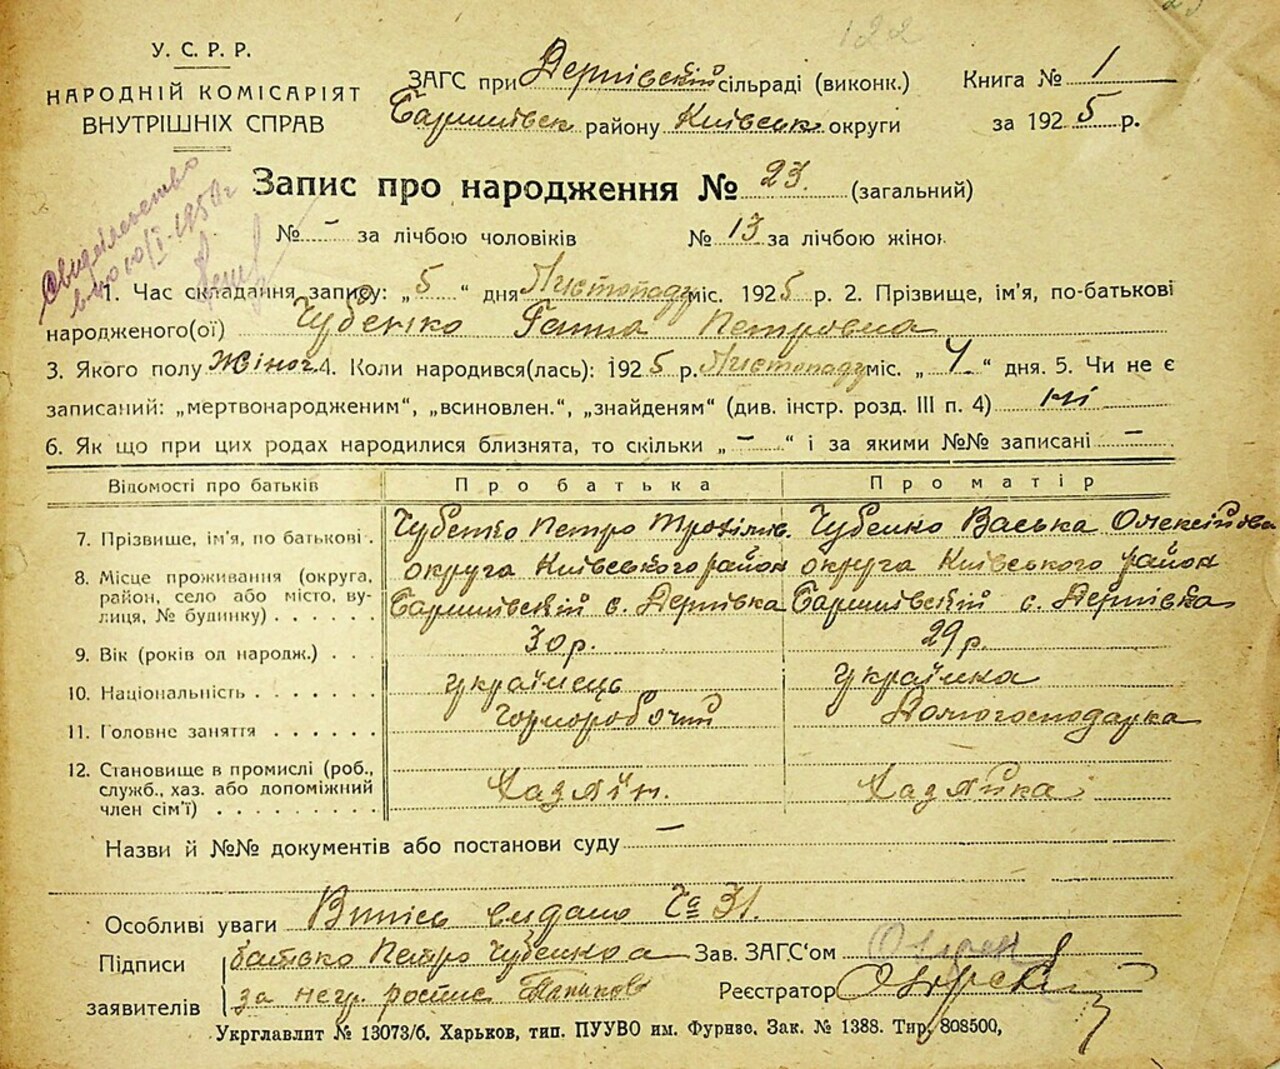 122
У. С. Р. Р.
НАРОДНІЙ КОМІСАРІЯТ
ВНУТРІШНІХ СПРАВ
ЗАГС при Дернівскій сільраді (виконк.)
Баришівськ району Київськ округи
Книга № 1
за 1925 р.
Свидетельство
Запис про народження № 23. (загальний)
№ - за лічбою чоловіків № 13 за лічбою жінок
1. Час складання запису: „5“ дня Листопаду міс. 1925 р. 2. Прізвище, ім'я, по-батькові
народженого(ої) Чубенко Ганна Петровна
3. Якого полу Жіноч. 4. Коли народився(лась): 1925 р. Листопаду міс. „4.“ дня. 5. Чи не є
записаний: „мертвонародженим“, „всиновлен.“, „знайденям“ (див. інстр. розд. III п. 4) ні
6. Як що при цих родах народилися близнята, то скільки „-“ і за якими №№ записані -
Відомості про батьків Про батька Про матір
7. Прізвище, ім'я, по батькові. Чубенко Петро Трохімів. Чубенко Васька Олексійовна
8. Місце проживання (округа, район, село або місто, вулиця, № будинку) округа Київського район округа Київського район
Баришівскій с. Дернівка Баришівскій с. Дернівка
9. Вік (років од народж.) 30 р. 29 р.
10. Національність українець українка
11. Головне заняття чорноробочий Домогосподарка
12. Становище в промислі (роб., служб., хаз. або допоміжний член сім'ї) Хазяїн. Хазяйка
Назви й №№ документів або постанови суду —
Особливі уваги Витісь видано За № 31.
Підписи батько Петро Чубенко а Зав. ЗАГС'ом
заявителів за негр. роспис Реєстратор
Укрглавлит № 13073/б. Харьков, тип. ПУУВО им. Фрунзе. Зак. № 1388. Тир. 808500,